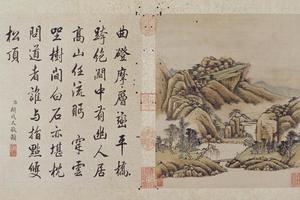 曲磴摩層巒平橋
跨絕澗中有幽人居
高山任流眄雲
樹間白石亦堪枕
問道者誰與指點雙
松頂